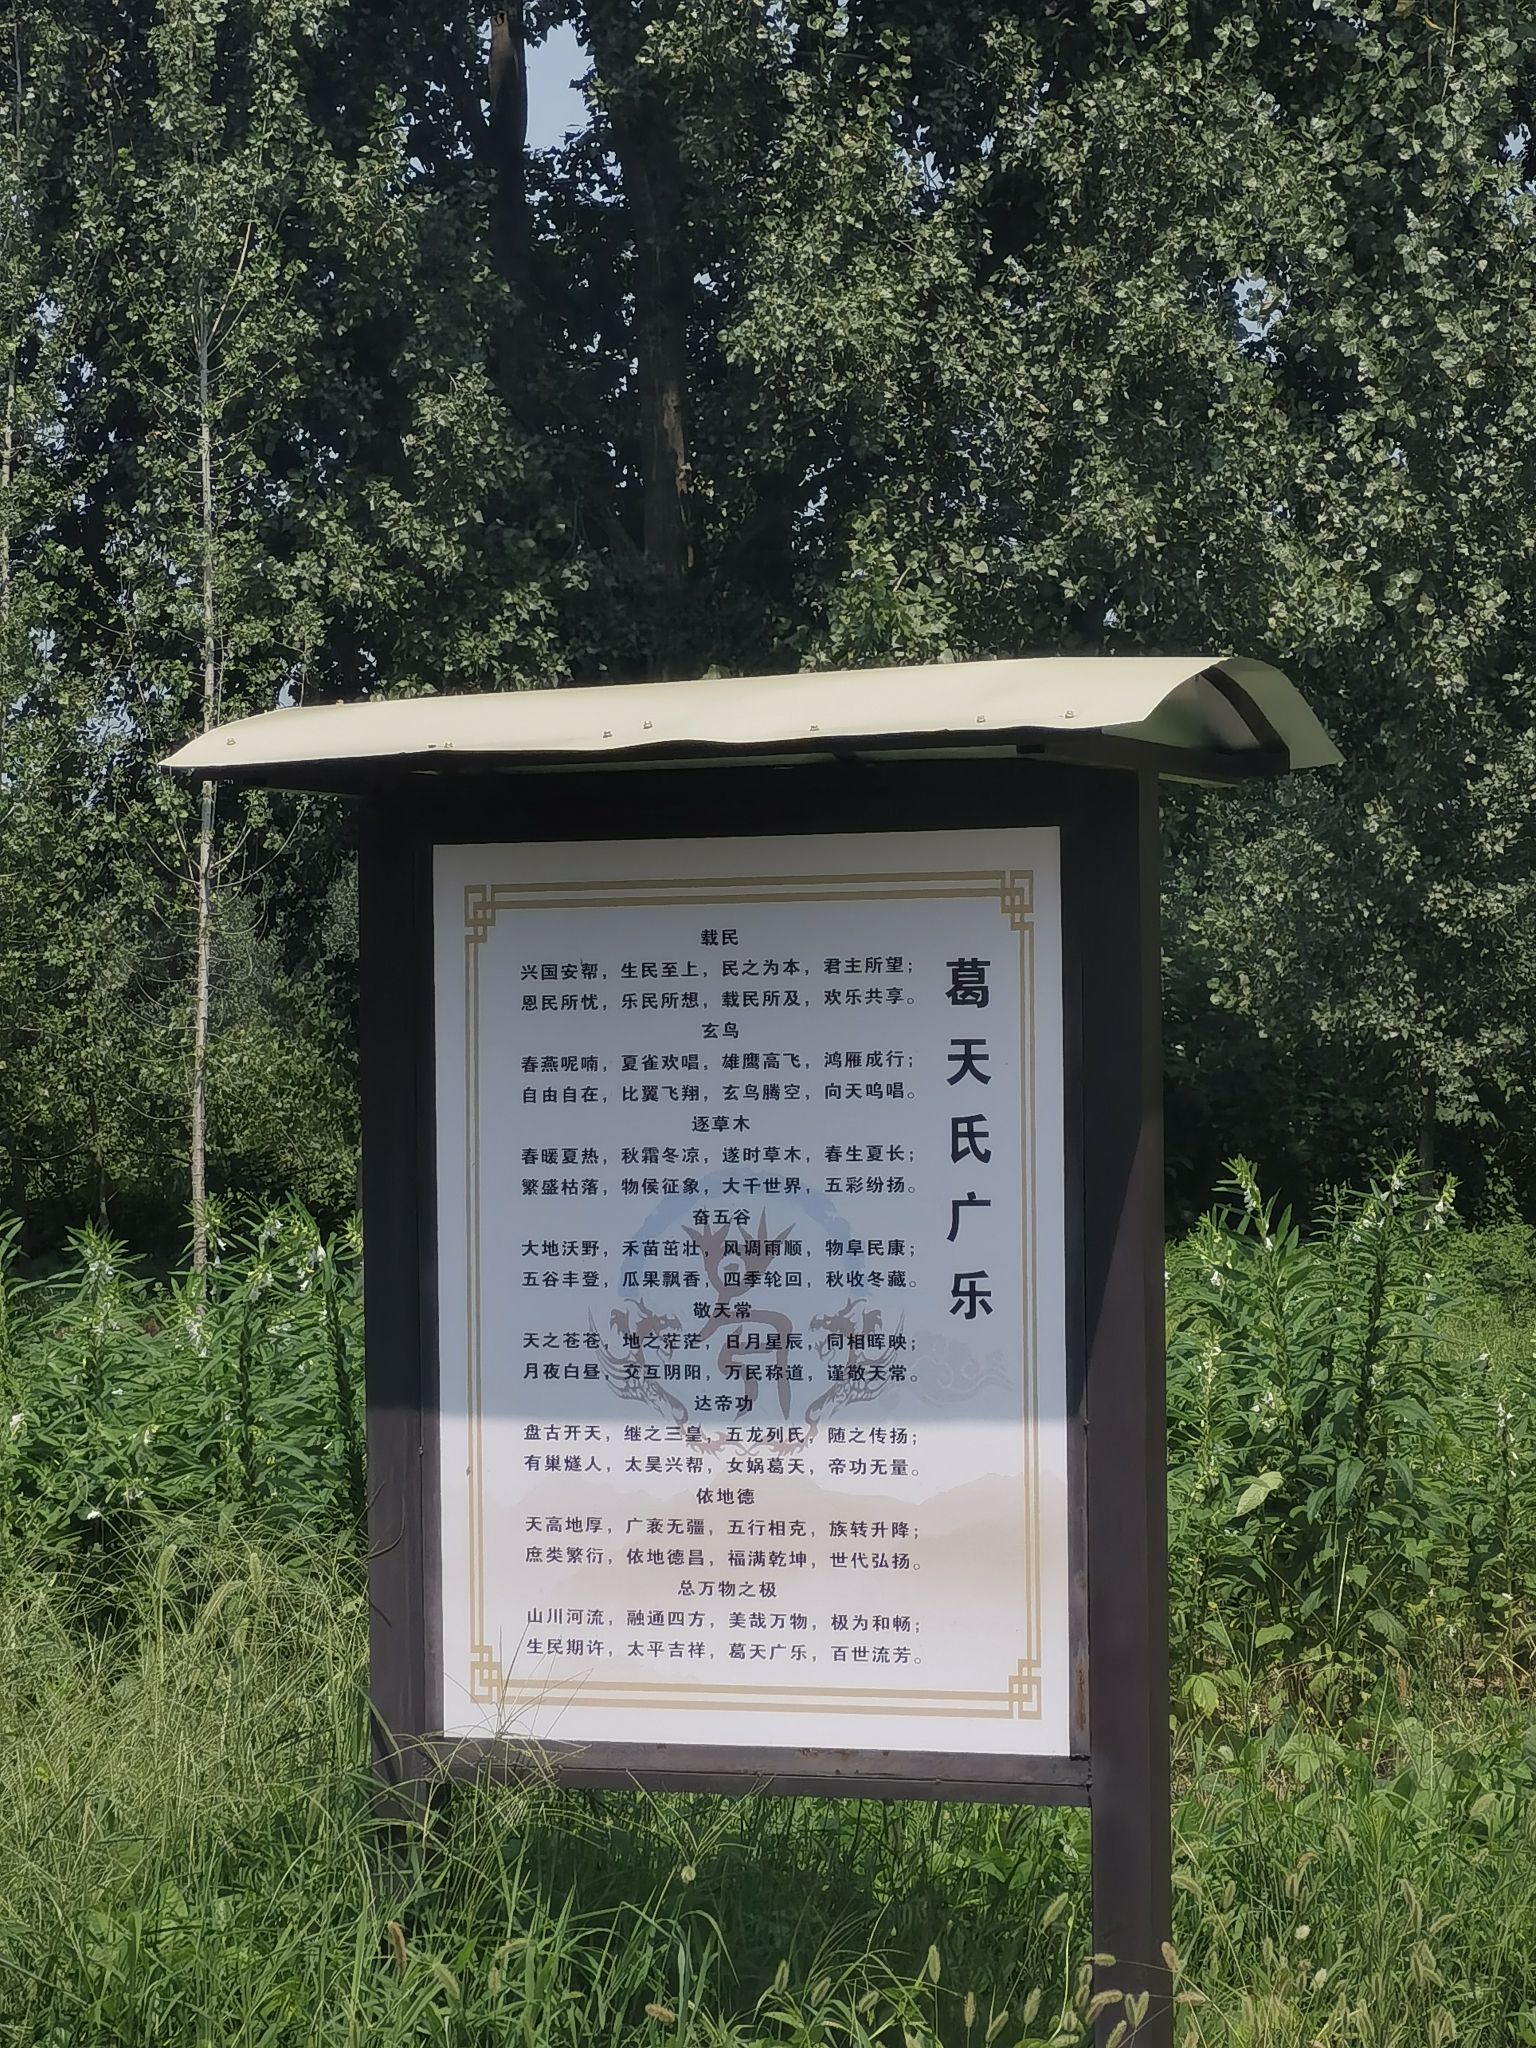 葛天氏广乐
载民
兴国安帮，生民至上，民之为本，君主所望；
恩民所忧，乐民所想，载民所及，欢乐共享。
玄鸟
春燕呢喃，夏雀欢唱，雄鹰高飞，鸿雁成行；
自由自在，比翼飞翔，玄鸟腾空，向天鸣唱。
逐草木
春暖夏热，秋霜冬凉，遂时草木，春生夏长；
繁盛枯落，物侯征象，大千世界，五彩纷扬。
奋五谷
大地沃野，禾苗茁壮，风调雨顺，物阜民康；
五谷丰登，瓜果飘香，四季轮回，秋收冬藏。
敬天常
天之苍苍，地之茫茫，日月星辰，同相晖映；
月夜白昼，交互阴阳，万民称道，谨敬天常。
达帝功
盘古开天，继之三皇，五龙列氏，随之传扬；
有巢燧人，太昊兴帮，女娲葛天，帝功无量。
依地德
天高地厚，广袤无疆，五行相克，族转升降；
庶类繁衍，依地德昌，福满乾坤，世代弘扬。
总万物之极
山川河流，融通四方，美哉万物，极为和畅；
生民期许，太平吉祥，葛天广乐，百世流芳。